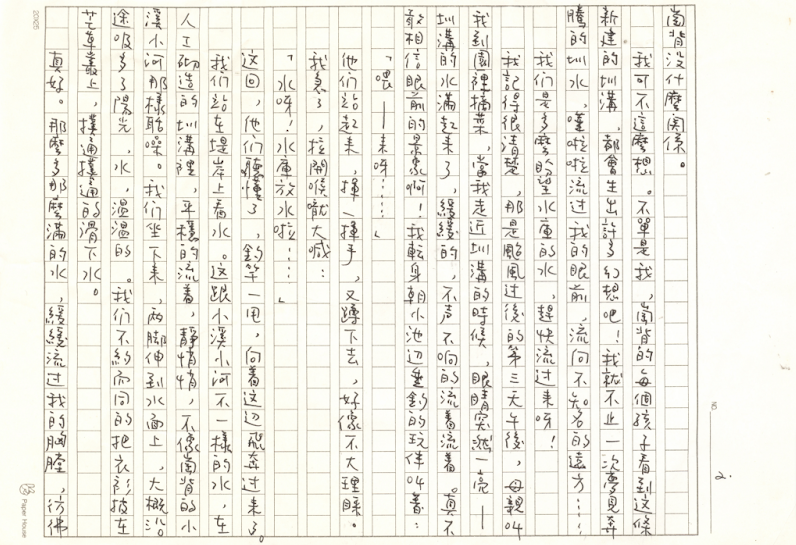 崙背沒什麼關係。
我可不這麼想。不單是我，崙背的每個孩子看到這條
新建的圳溝，都會生出許多幻想吧！我就不止一次夢見奔
騰的圳水，嘩啦啦流過我的眼前，流向不知名的遠方……
我们是多麼盼望水庫的水，趕快流过来呀！
我記得很清楚，那是颱風过後的第三天午後，母親叫
我到園裡摘菜，當我走近圳溝的時候，眼睛突然一亮——
圳溝的水滿起来了，緩緩的，不声不响的流着流着。真不
敢相信眼前的景象啊！我転身朝小池辺垂釣的玩伴叫着：
「喂——来呀……」
他们站起来，揮一揮手，又蹲下去，好像不大理睬。
我急了，拉開喉嚨大喊：
「水呀！水庫放水啦……」
這回，他们聽懂了，釣竿一甩，向着这辺飛奔过来了。
我们站在堤岸上看水。这跟小溪小河不一樣的水，在
人工砌造的圳溝裡，平穩的流着，靜悄悄，不像崙背的小
溪小河那樣聒噪。我们坐下来，兩脚伸到水面上，大概沿
途吸多了陽光，水，温温的。我们不約而同的把衣衫披在
芒草叢上，撲通撲通的滑下水。
真好。那麼多那麼滿的水，緩緩流过我的胸膛，彷佛
2.
20x25
Paper House